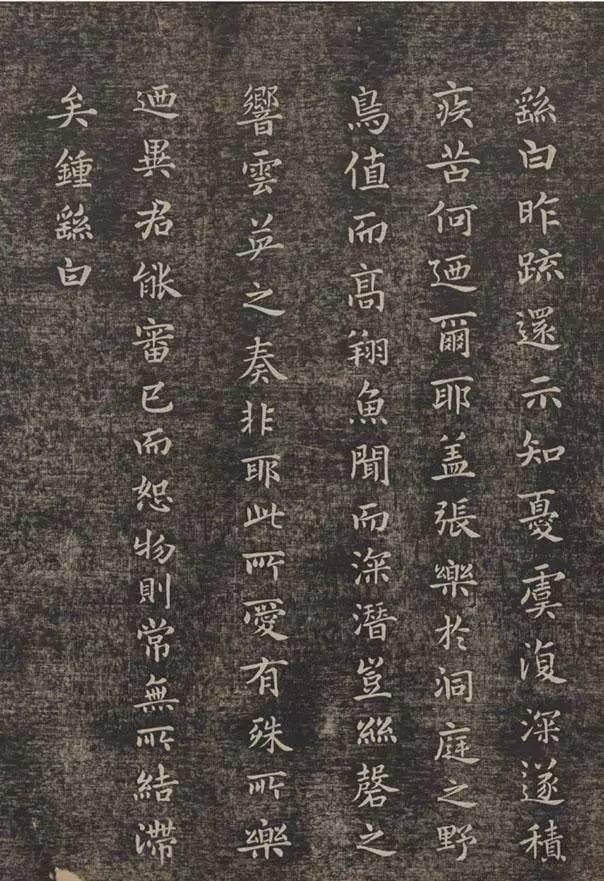 繇白昨疏還示知憂虞復深遂積
疾苦何迺爾耶蓋張樂於洞庭之野
鳥值而高翔魚聞而深潛豈絲磬之
響雲英之奏非耶此所愛有殊所樂
迺異君能審己而恕物則常無所結滯
矣鍾繇白